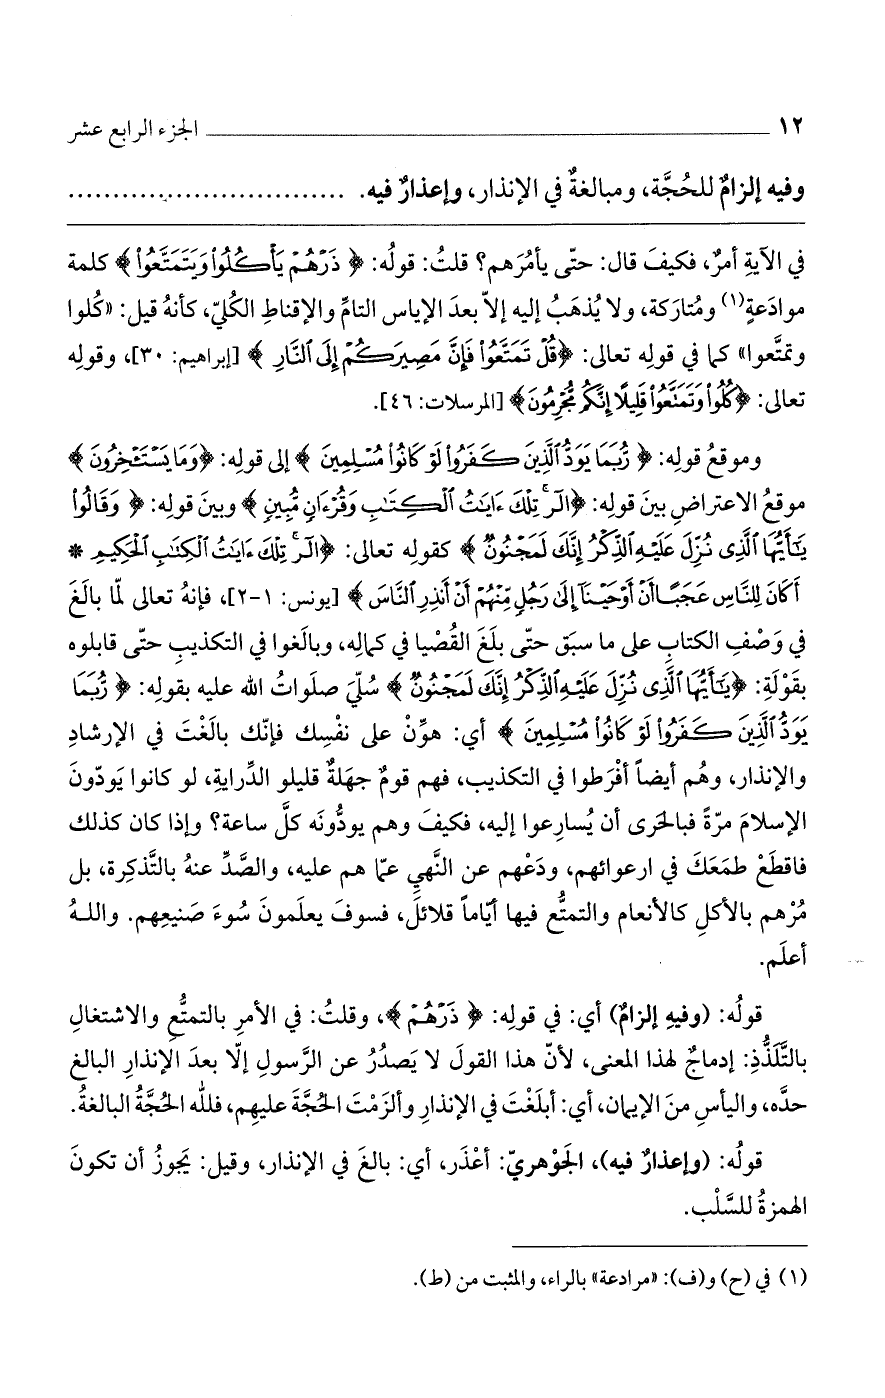 ١٢ الجزء الرابع عشر
وفيه إلزامٌ للحُجَّة، ومبالغةٌ في الإنذار، وإعذارٌ فيه. ...............................
في الآيةِ أمرٌ، فكيفَ قال: حتّى يأمُرَهم؟ قلتُ: قولُه: ﴿ ذَرْهُمْ يَأْكُلُوا۟ وَيَتَمَتَّعُوا۟ ﴾ كلمة
موادَعةٍ(١) ومُتارَكة، ولا يُذهَبُ إليه إلاّ بعدَ الإياس التامِّ والإقناطِ الكُليّ، كأنهُ قيل: «كُلوا
وتمتَّعوا» كما في قولِه تعالى: ﴿قُلْ تَمَتَّعُوا۟ فَإِنَّ مَصِيرَكُمْ إِلَى ٱلنَّارِ ﴾ [إبراهيم: ٣٠]، وقولِه
تعالى: ﴿كُلُوا۟ وَتَمَتَّعُوا۟ قَلِيلًا إِنَّكُم مُّجْرِمُونَ﴾ [المرسلات: ٤٦].
وموقعُ قولِه: ﴿ رُّبَمَا يَوَدُّ ٱلَّذِينَ كَفَرُوا۟ لَوْ كَانُوا۟ مُسْلِمِينَ ﴾ إلى قولِه: ﴿وَمَا يَسْتَـْٔخِرُونَ ﴾
موقعُ الاعتراضِ بينَ قولِه: ﴿الٓر ۚ تِلْكَ ءَايَـٰتُ ٱلْكِتَـٰبِ وَقُرْءَانٍ مُّبِينٍ ﴾ وبينَ قولِه: ﴿ وَقَالُوا۟
يَـٰٓأَيُّهَا ٱلَّذِى نُزِّلَ عَلَيْهِ ٱلذِّكْرُ إِنَّكَ لَمَجْنُونٌ ﴾ كقولِه تعالى: ﴿الٓر ۚ تِلْكَ ءَايَـٰتُ ٱلْكِتَـٰبِ ٱلْحَكِيمِ *
أَكَانَ لِلنَّاسِ عَجَبًا أَنْ أَوْحَيْنَآ إِلَىٰ رَجُلٍ مِّنْهُمْ أَنْ أَنذِرِ ٱلنَّاسَ ﴾ [يونس: ١-٢]، فإنهُ تعالى لمّا بالَغَ
في وَصْفِ الكتابِ على ما سبَق حتّى بلَغَ القُصْيا في كمالِه، وبالَغوا في التكذيبِ حتّى قابلوه
بقَوْلَةِ: ﴿يَـٰٓأَيُّهَا ٱلَّذِى نُزِّلَ عَلَيْهِ ٱلذِّكْرُ إِنَّكَ لَمَجْنُونٌ ﴾ سُلِّيَ صلَواتُ الله عليه بقولِه: ﴿ رُّبَمَا
يَوَدُّ ٱلَّذِينَ كَفَرُوا۟ لَوْ كَانُوا۟ مُسْلِمِينَ ﴾ أي: هوِّنْ على نفْسِك فإنّك بالَغْتَ في الإرشادِ
والإنذار، وهُم أيضاً أفْرَطوا في التكذيب، فهم قومٌ جهَلةٌ قليلو الدِّرايةِ، لو كانوا يَودّونَ
الإسلامَ مرّةً فبالحَرى أن يُسارِعوا إليه، فكيفَ وهم يودُّونَه كلَّ ساعة؟ وإذا كان كذلك
فاقطَعْ طمَعَكَ في ارعوائهم، ودَعْهم عن النَّهيِ عمّا هم عليه، والصَّدِّ عنهُ بالتَّذكِرة، بل
مُرْهم بالأكلِ كالأنعام والتمتُّع فيها أيّاماً قلائلَ، فسوفَ يعلَمونَ سُوءَ صَنيعِهم. واللهُ
أعلَم.
قولُه: (وفيهِ إلزامٌ) أي: في قولِه: ﴿ ذَرْهُمْ ﴾، وقلتُ: في الأمرِ بالتمتُّعِ والاشتغالِ
بالتَّلَذُّذِ: إدماجٌ لهذا المعنى، لأنّ هذا القولَ لا يَصدُرُ عن الرَّسولِ إلّا بعدَ الإنذارِ البالغ
حدَّه، واليأسِ منَ الإيمان، أي: أبلَغْتَ في الإنذارِ وألزَمْتَ الحُجَّةَ عليهِم، فلله الحُجَّةُ البالغةُ.
قولُه: (وإعذارٌ فيه)، الجَوْهريّ: أعْذَر، أي: بالغَ في الإنذار، وقيل: يَجوزُ أن تكونَ
الهمزةُ للسَّلْب.
(١) في (ح) و(ف): «مرادعة» بالراء، والمثبت من (ط).